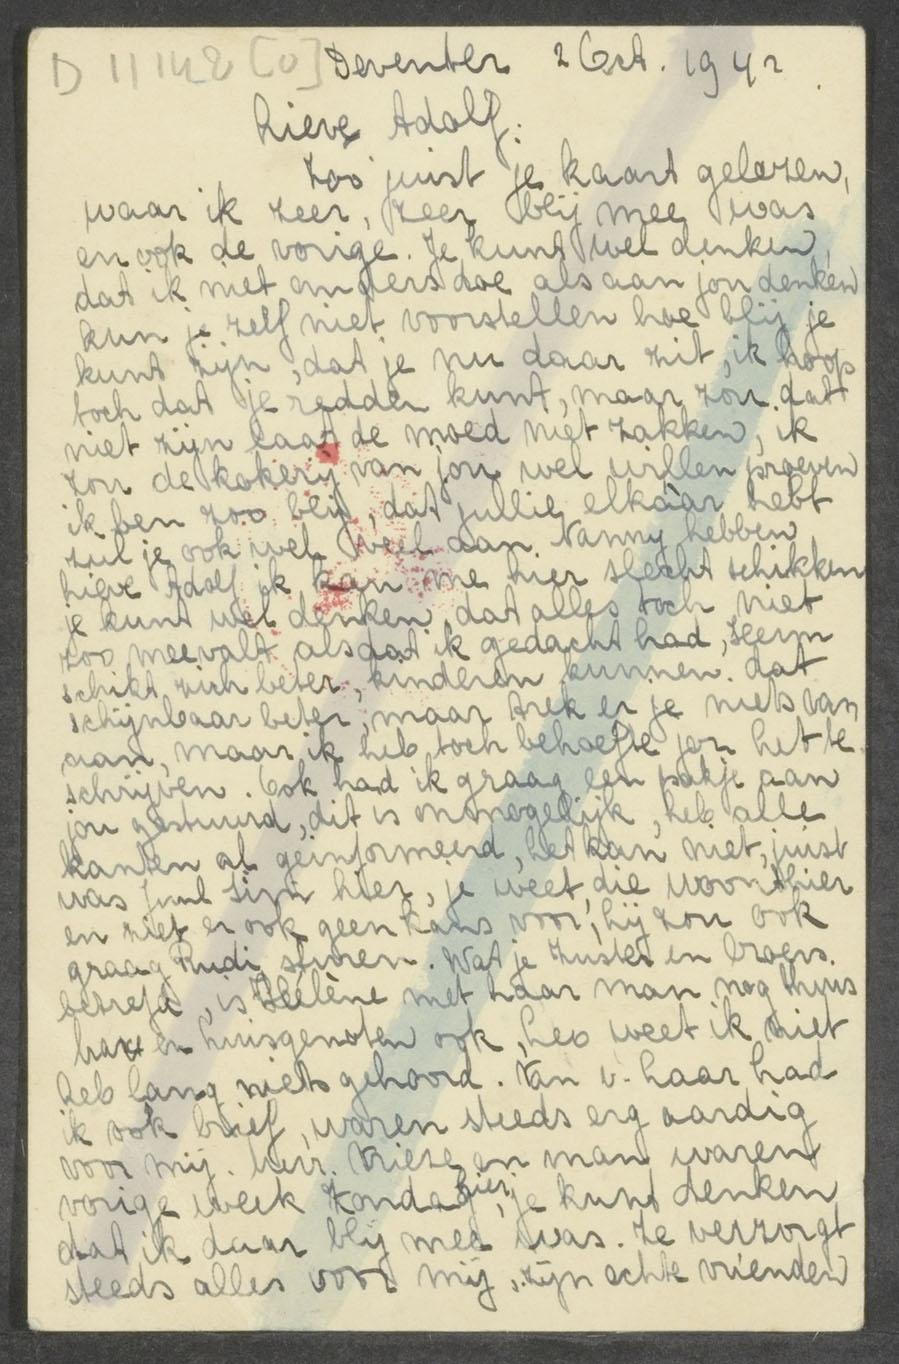 D 11148 [0] Deventer 2 Oct. 1942
Lieve Adolf.
Zoo juist je kaart gelezen,
waar ik zeer, zeer blij mee was
en ook de vorige. Je kunt wel denken,
dat ik niet anders doe als aan jou denken
kun je zelf niet voorstellen hoe blij je
kunt zijn, dat je nu daar zit, ik hoop
toch dat je redden kunt, maar zou dat
niet zijn laat de moed niet zakken, ik
zou de kokerij van jou wel willen proeven
ik ben zoo blij, dat jullie elkaar hebt
zul je ook wel veel aan Nanny hebben
Lieve Adolf ik kan me hier slecht schikken
je kunt wel denken, dat alles toch niet
zoo meevalt als dat ik gedacht had,
schikt zich beter, kinderen kunnen dat
schijnbaar beter, maar trek er je niets van
aan, maar ik heb toch behoefte jou het te
schrijven. Ook had ik graag een pakje aan
jou gestuurd, dit is onmogelijk, heb alle
kanten al geinformeerd, het kan niet, juist
was hier, je weet, die woont hier
en ziet er ook geen kans voor, hij zou ook
graag Rudi sturen. Wat je zusters en broers
betreft, is Hélène met haar man nog thuis
en huisgenoten ook, Leo weet ik niet
heb lang niets gehoord. Van v. Haar had
ik ook brief, waren steeds erg aardig
voor mij. Mevr. Vrieze en man waren
vorige week Zondag hier, je kunt denken
dat ik daar blij mee was. Ze verzorgt
steeds alles voor mij, zijn echte vrienden